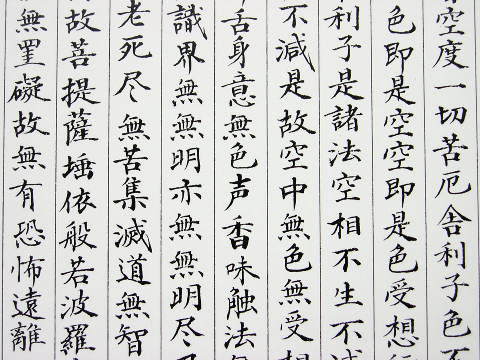 空度一切苦厄舎利子色不
色即是空空即是色受想行
利子是諸法空相不生不
不減是故空中無色無受想
舌身意無色声香味触法
識界無無明亦無無明尽乃
老死尽無苦集滅道無智
故菩提薩埵依般若波羅
無罣礙故無有恐怖遠離